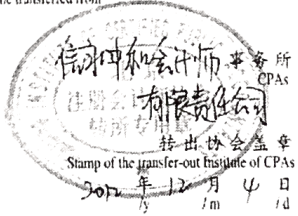 the transferred from
信永中和会计师 事务所
CPAs
有限责任公司
转出协会盖章
Stamp of the transfer-out Institute of CPAs
2012 年 12 月 4 日
/y /m /d